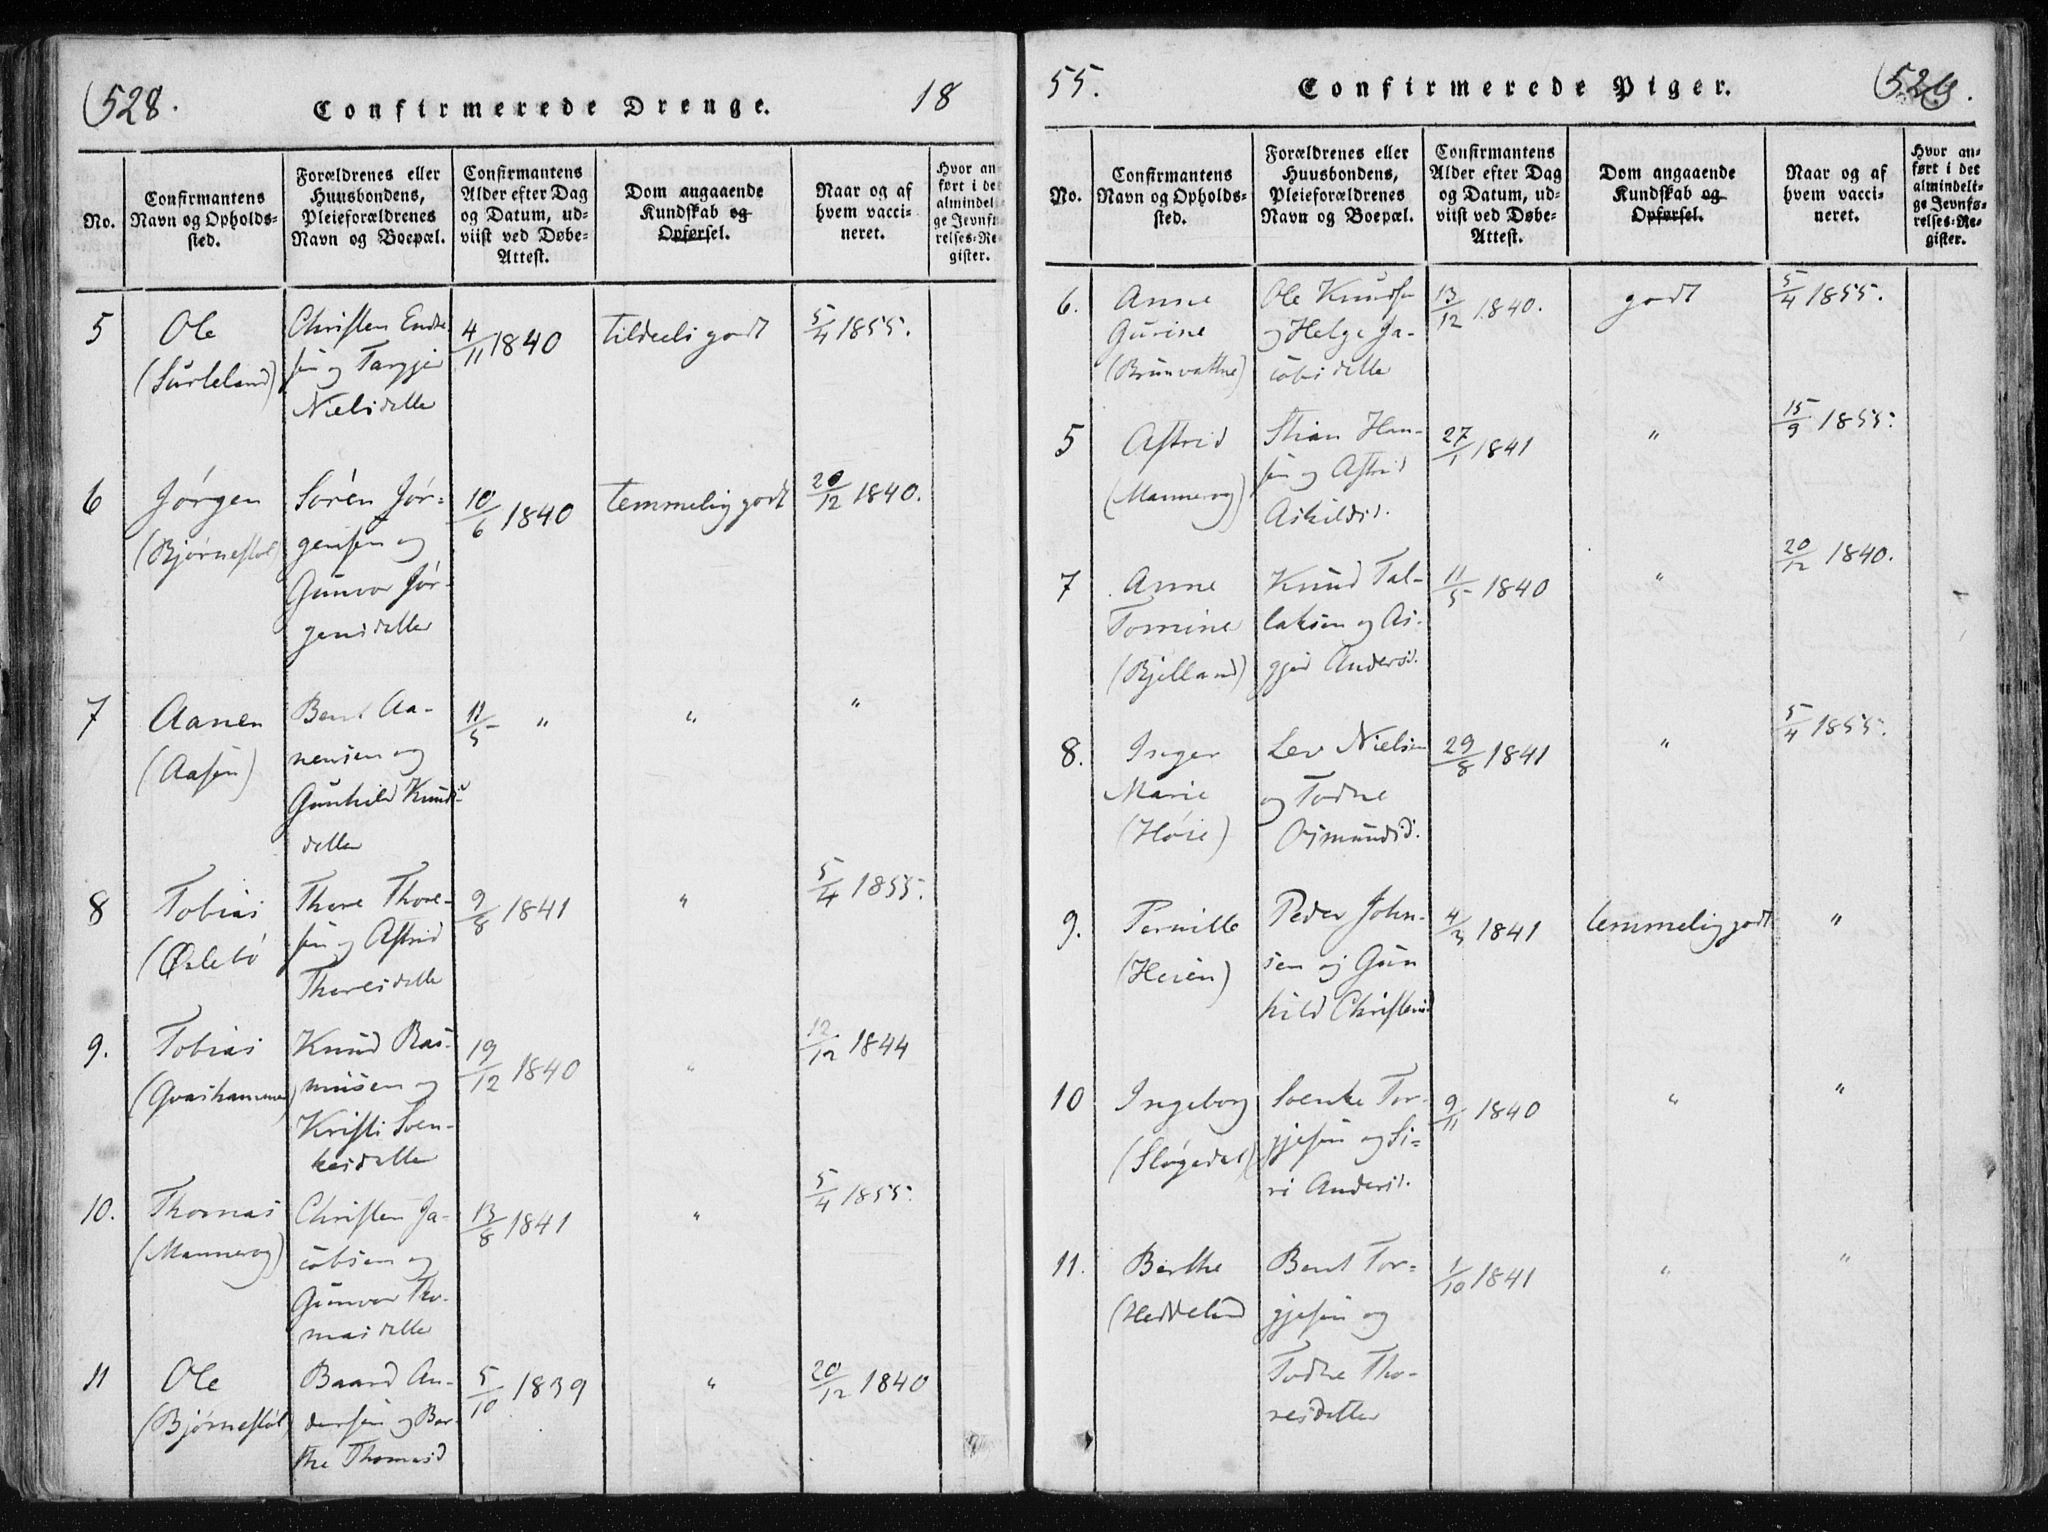 528.
Confirmerede Drenge.
18
No.
Confirmantens
Navn og Opholds-
sted.
Forældrenes eller
Huusbondens,
Pleieforældrenes
Navn og Boepæl.
Confirmantens
Alder efter Dag
og Datum, ud-
viist ved Døbe-
Attest.
Dom angaaende
Kundskab og
Opførsel.
Naar og af
hvem vacci-
neret.
Hvor an-
ført i det
almindeli-
ge Jevnfø-
relses-Re-
gister.
5
Ole
(Surteland)
Christen Endre
sen og Targjer
Nielsdatter
4/11 1840
tildeels godt
5/4 1855.
6
Jørgen
(Bjørnestøl
Søren Jør-
gensen og
Gunvor Jør-
gensdatter
10/6 1840
temmelig godt
20/12 1840.
7
Aanen
(Aasen)
Bent Aa-
nensen og
Gunhild Knuds
datter
11/5 "
"
"
8
Tobias
(Øslebø
Thore Thore-
sen og Astrid
Thoresdatter
9/8 1841
"
5/4 1855.
9.
Tobias
(Qvashammer)
Knud Ras-
musen og
Kristi Sven-
kesdatter
19/12 1840
"
12/12 1844
10.
Thomas
(Mannerog)
Christen Ja-
cobsen og
Gunvor Tho-
masdatter
13/8 1841
"
5/4 1855.
11
Ole
(Bjørnestøl
Baard An-
dersen og Ber-
the Thomasd
5/10 1839
"
20/12 1840
55.
Confirmerede Piger.
529.
No.
Confirmantens
Navn og Opholds-
sted.
Forældrenes eller
Huusbondens,
Pleieforældrenes
Navn og Boepæl.
Confirmantens
Alder efter Dag
og Datum, ud-
viist ved Døbe-
Attest.
Dom angaaende
Kundskab og
Opførsel.
Naar og af
hvem vacci-
neret.
Hvor an-
ført i det
almindeli-
ge Jevnfø-
relses-Re-
gister.
6.
Anne
Gurine
(Brunvattne)
Ole Knudsen
og Helge Ja-
cobsdatter
13/12 1840.
godt
5/4 1855.
5
Astrid
(Mannerog)
Stian Han-
sen og Astrid
Askildsd.
27/1 1841
"
15/9 1855.
7
Anne
Tomine
(Bjelland)
Knud Tal-
laksen og As-
gjerd Andersd.
11/5 1840
"
20/12 1840.
8.
Inger
Marie
(Høie)
Lev Nielsen
og Todne
Osmundsd.
29/8 1841
"
5/4 1855.
9.
Pernille
(Heien)
Peder John-
sen og Gun
hild Christensd
4/3 1841
temmelig godt
"
10
Ingeborg
(Sløgedal)
Svenke Tor-
gjesen og Si-
ri Andersd.
9/11 1840
"
"
11.
Berthe
(Heddeland
Bent Tor-
gjesen og
Todne Tho-
resdatter
1/10 1841
"
"